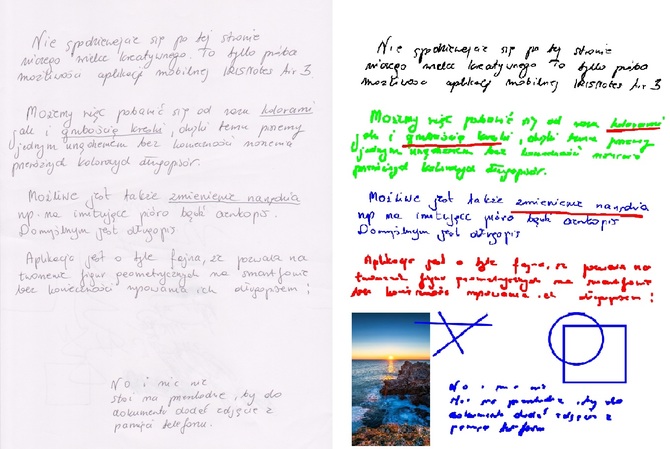 Nie spodziewajcie się po tej stronie
niczego wielce kreatywnego. To tylko próba
możliwości aplikacji mobilnej IRISNotes Air 3.
Możemy więc pobawić się od razu kolorami
ale i grubością kreski, dzięki temu piszemy
jednym urządzeniem bez konieczności noszenia
różnych kolorowych długopisów.
Możliwe jest także zmienienie narzędzia
np. na imitujące pióro bądź
Domyślnym jest długopis
Aplikacja jest o tyle fajna, że pozwala na
tworzenie figur geometrycznych na smartfonie
bez konieczności rysowania ich długopisem!
No i nic nie
stoi na przeszkodzie, by do
dokumentu dodać zdjęcie z
pamięci telefonu.
Nie spodziewajcie się po tej stronie
niczego wielce kreatywnego. To tylko próba
możliwości aplikacji mobilnej IRISNotes Air 3.
Możemy więc pobawić się od razu kolorami
ale i grubością kreski, dzięki temu piszemy
jednym urządzeniem bez konieczności
kolorowych długopisów.
Możliwe jest także zmienienie narzędzia
np. na imitujące pióro bądź
Domyślnym jest długopis
Aplikacja jest o tyle fajna, że pozwala na
tworzenie figur geometrycznych na smartfonie
bez konieczności rysowania ich długopisem!
No i nic nie
stoi na przeszkodzie, by do
dokumentu dodać zdjęcie z
pamięci telefonu.